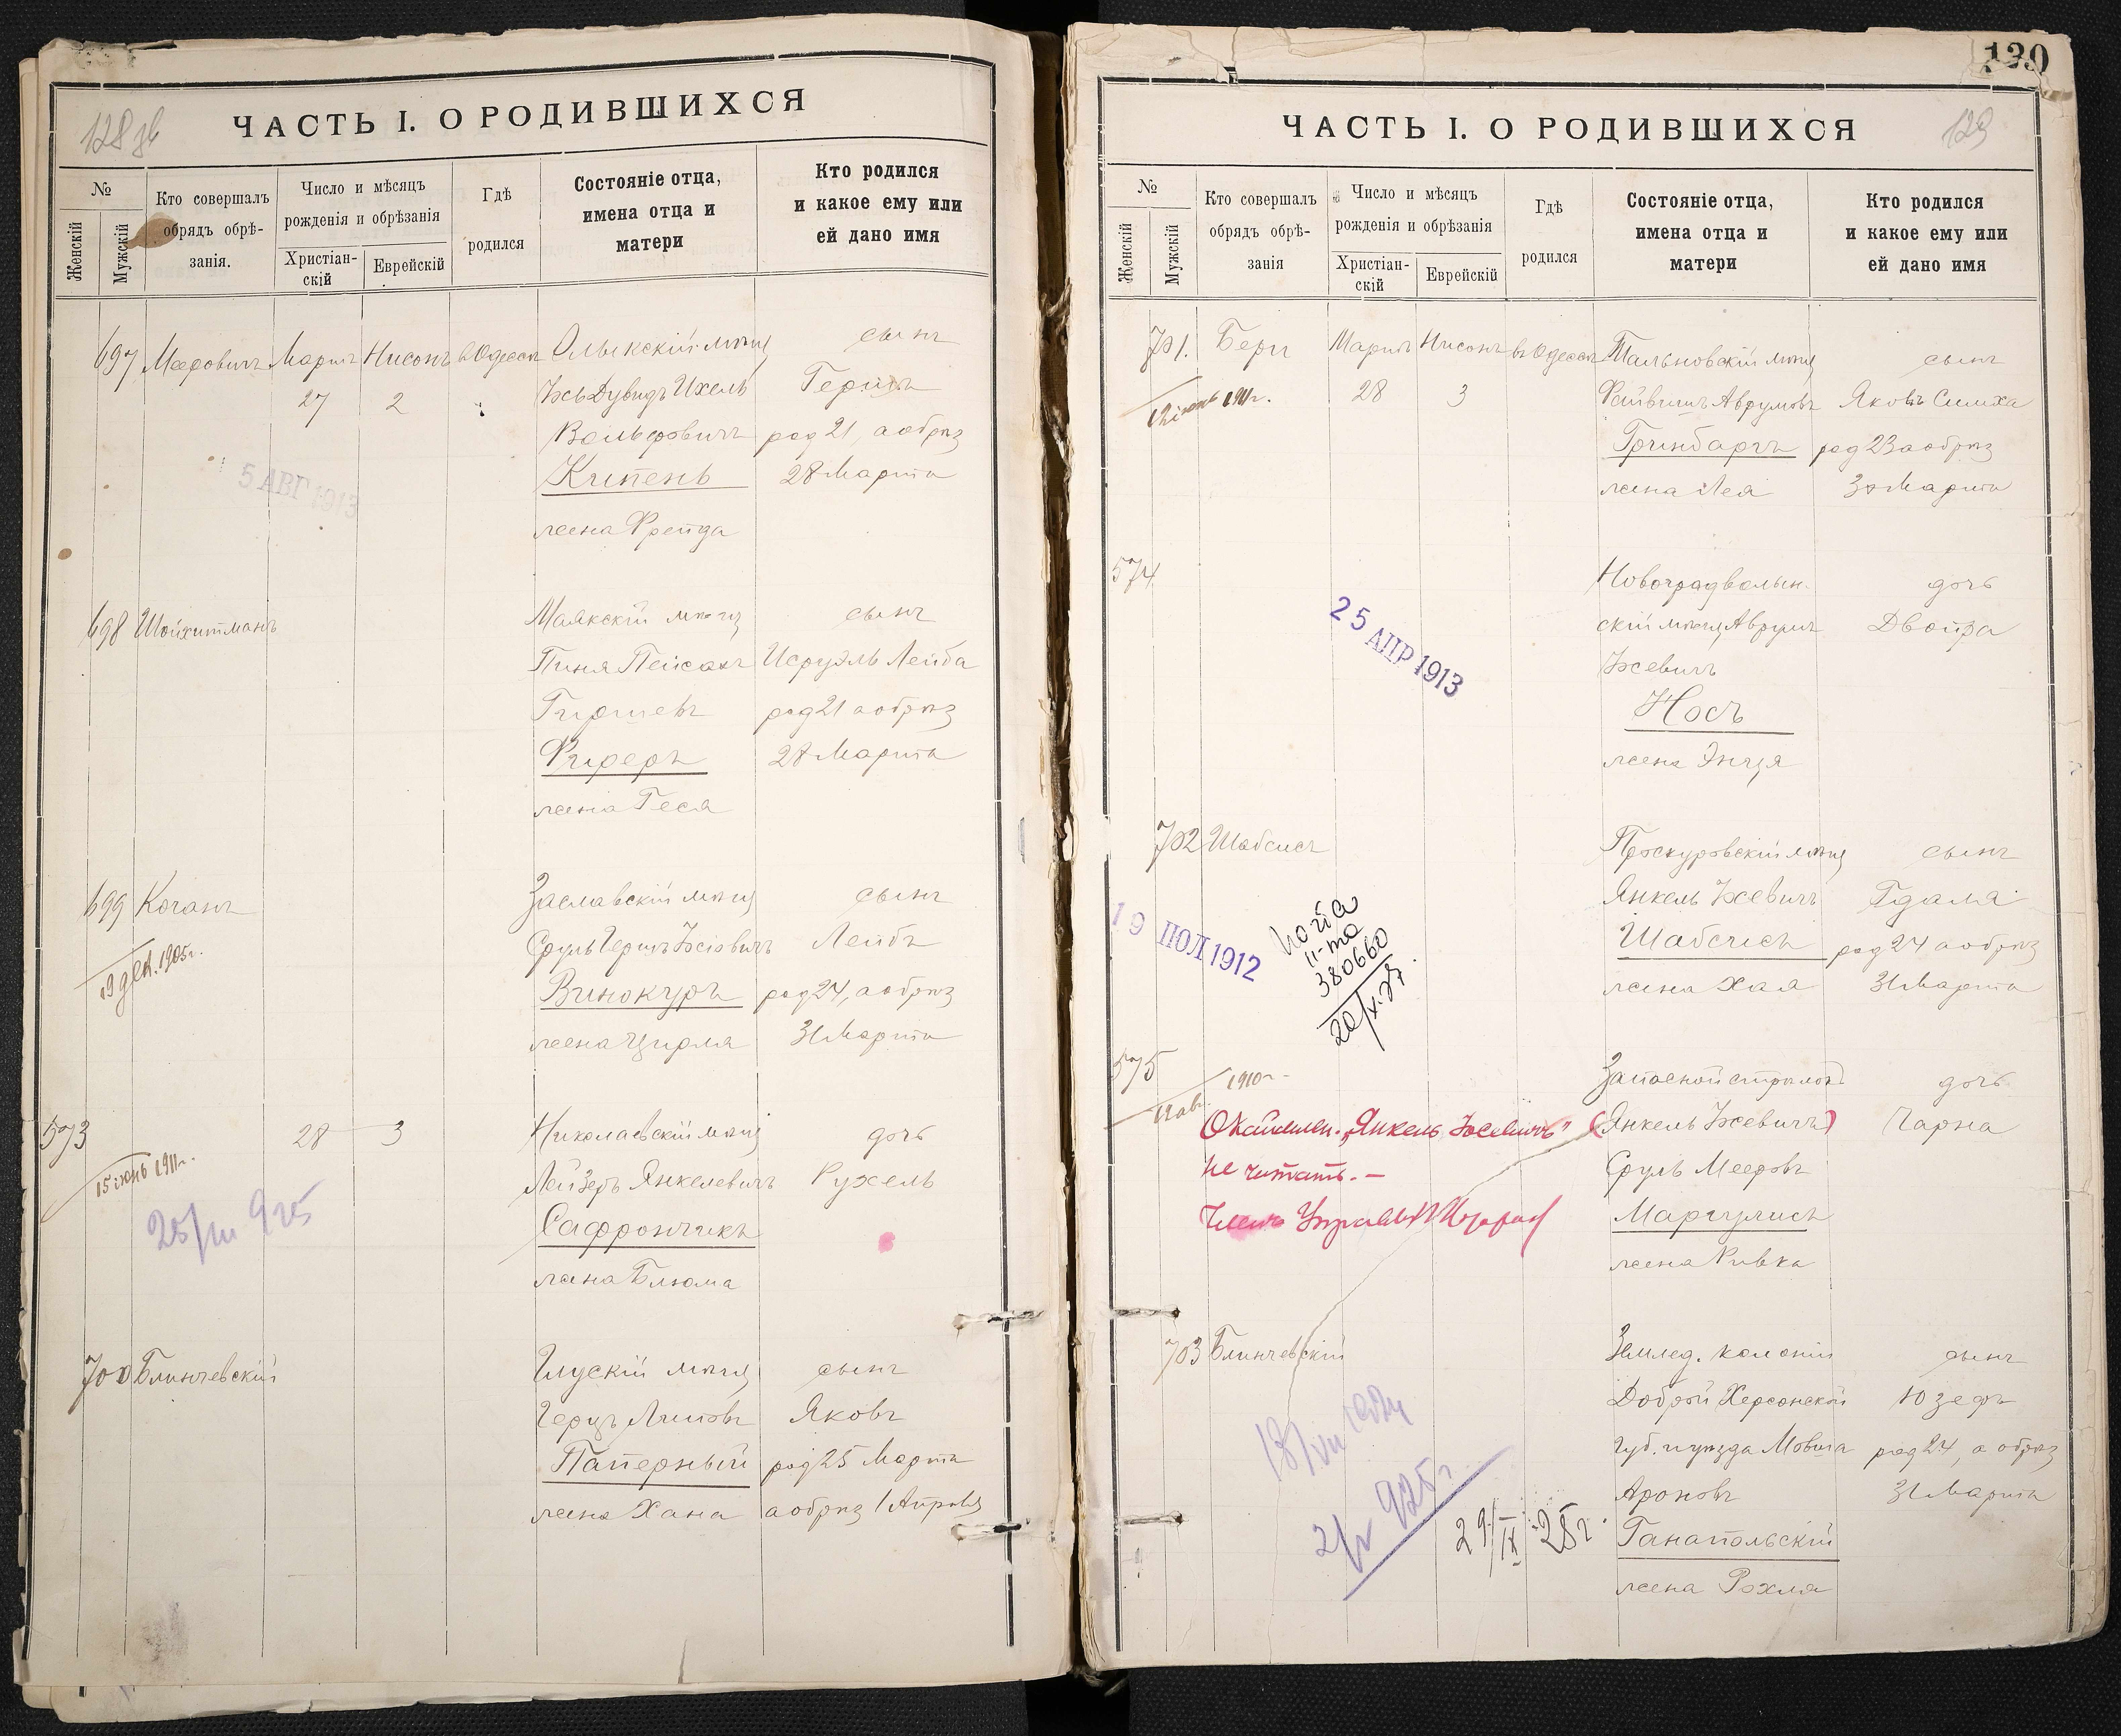 128 зв
ЧАСТЬ I. О РОДИВШИХСЯ
№
Женскій
Мужскій
Кто совершалъ
обрядъ обрѣ-
занія.
Число и мѣсяцъ
рожденія и обрѣзанія
Христіан-
скій
Еврейскій
Гдѣ
родился
Состояніе отца,
имена отца и
матери
Кто родился
и какое ему или
ей дано имя
697 Мееровичъ Мартъ Нисонъ въ Одессѣ Олыкскій мѣщ сынъ
27 2 Іось Дувидъ Ихель Гершъ
Вольфовичъ род 21, а обрѣз
Кипень 28 Марта
5 АВГ 1913
жена Фрейда
698 Шойхитманъ Маякскій мѣщ сынъ
Пиня Пейсахъ Исруэль Лейба
Гиршевъ род 21 а обрѣз
Фиферъ 28 Марта
жена Геся
699 Коганъ Заславскій мѣщ сынъ
Сруль Гершъ Іосіовичъ Лейбъ
19 дек. 1905г.
Винокуръ род 24, а обрѣз
жена Цирля 31 Марта
573 28 3 Николаевскій мѣщ дочь
15 іюнь 1911г.
Лейзеръ Янкелевичъ Рухель
25/III 925
Сафрончикъ
жена Блюма
700 Блинчевскій Глускій мѣщ сынъ
Герцъ Липовъ Яковъ
Паперный род 25 Марта
жена Хана а обрѣз 1 Апрѣля
130
129
ЧАСТЬ I. О РОДИВШИХСЯ
№
Женскій
Мужскій
Кто совершалъ
обрядъ обрѣ-
занія
Число и мѣсяцъ
рожденія и обрѣзанія
Христіан-
скій
Еврейскій
Гдѣ
родился
Состояніе отца,
имена отца и
матери
Кто родился
и какое ему или
ей дано имя
701. Бергъ Мартъ Нисонъ въ Одессѣ Тальновскій мѣщ сынъ
1911г. 28 3 Файвишъ Аврумовъ Яковъ Симха
Гринбаргъ род 23 а обрѣз
жена Лея 30 Марта
574 Новоградволын- дочь
скій мѣщ Аврумъ Двойра
25 АПР 1913
Іосевичъ
Носъ
жена Энця
702 Шабсисъ Проскуровскій мѣщ сынъ
Янкель Іосевичъ Гдаля
19 ІЮЛ 1912
копія
380660
20/X.27.
Шабсисъ род 24 а обрѣз
жена Хая 31 Марта
575 1910г. Запасной дочь
12 ав.
Оклеймен. „Янкель Іосевичъ" (Янкель Іосевичъ) Чарна
не читать.— Сруль Мееровъ
Маргулисъ
жена Ривка
703 Блинчевскій Землед. колоніи сынъ
Доброй Херсонской Юзефъ
губ. и уѣзда Мовша род 24, а обрѣз
2/V 925г
Ароновъ 31 Марта
29/IX-25г. Ганапольскій
жена Рохля